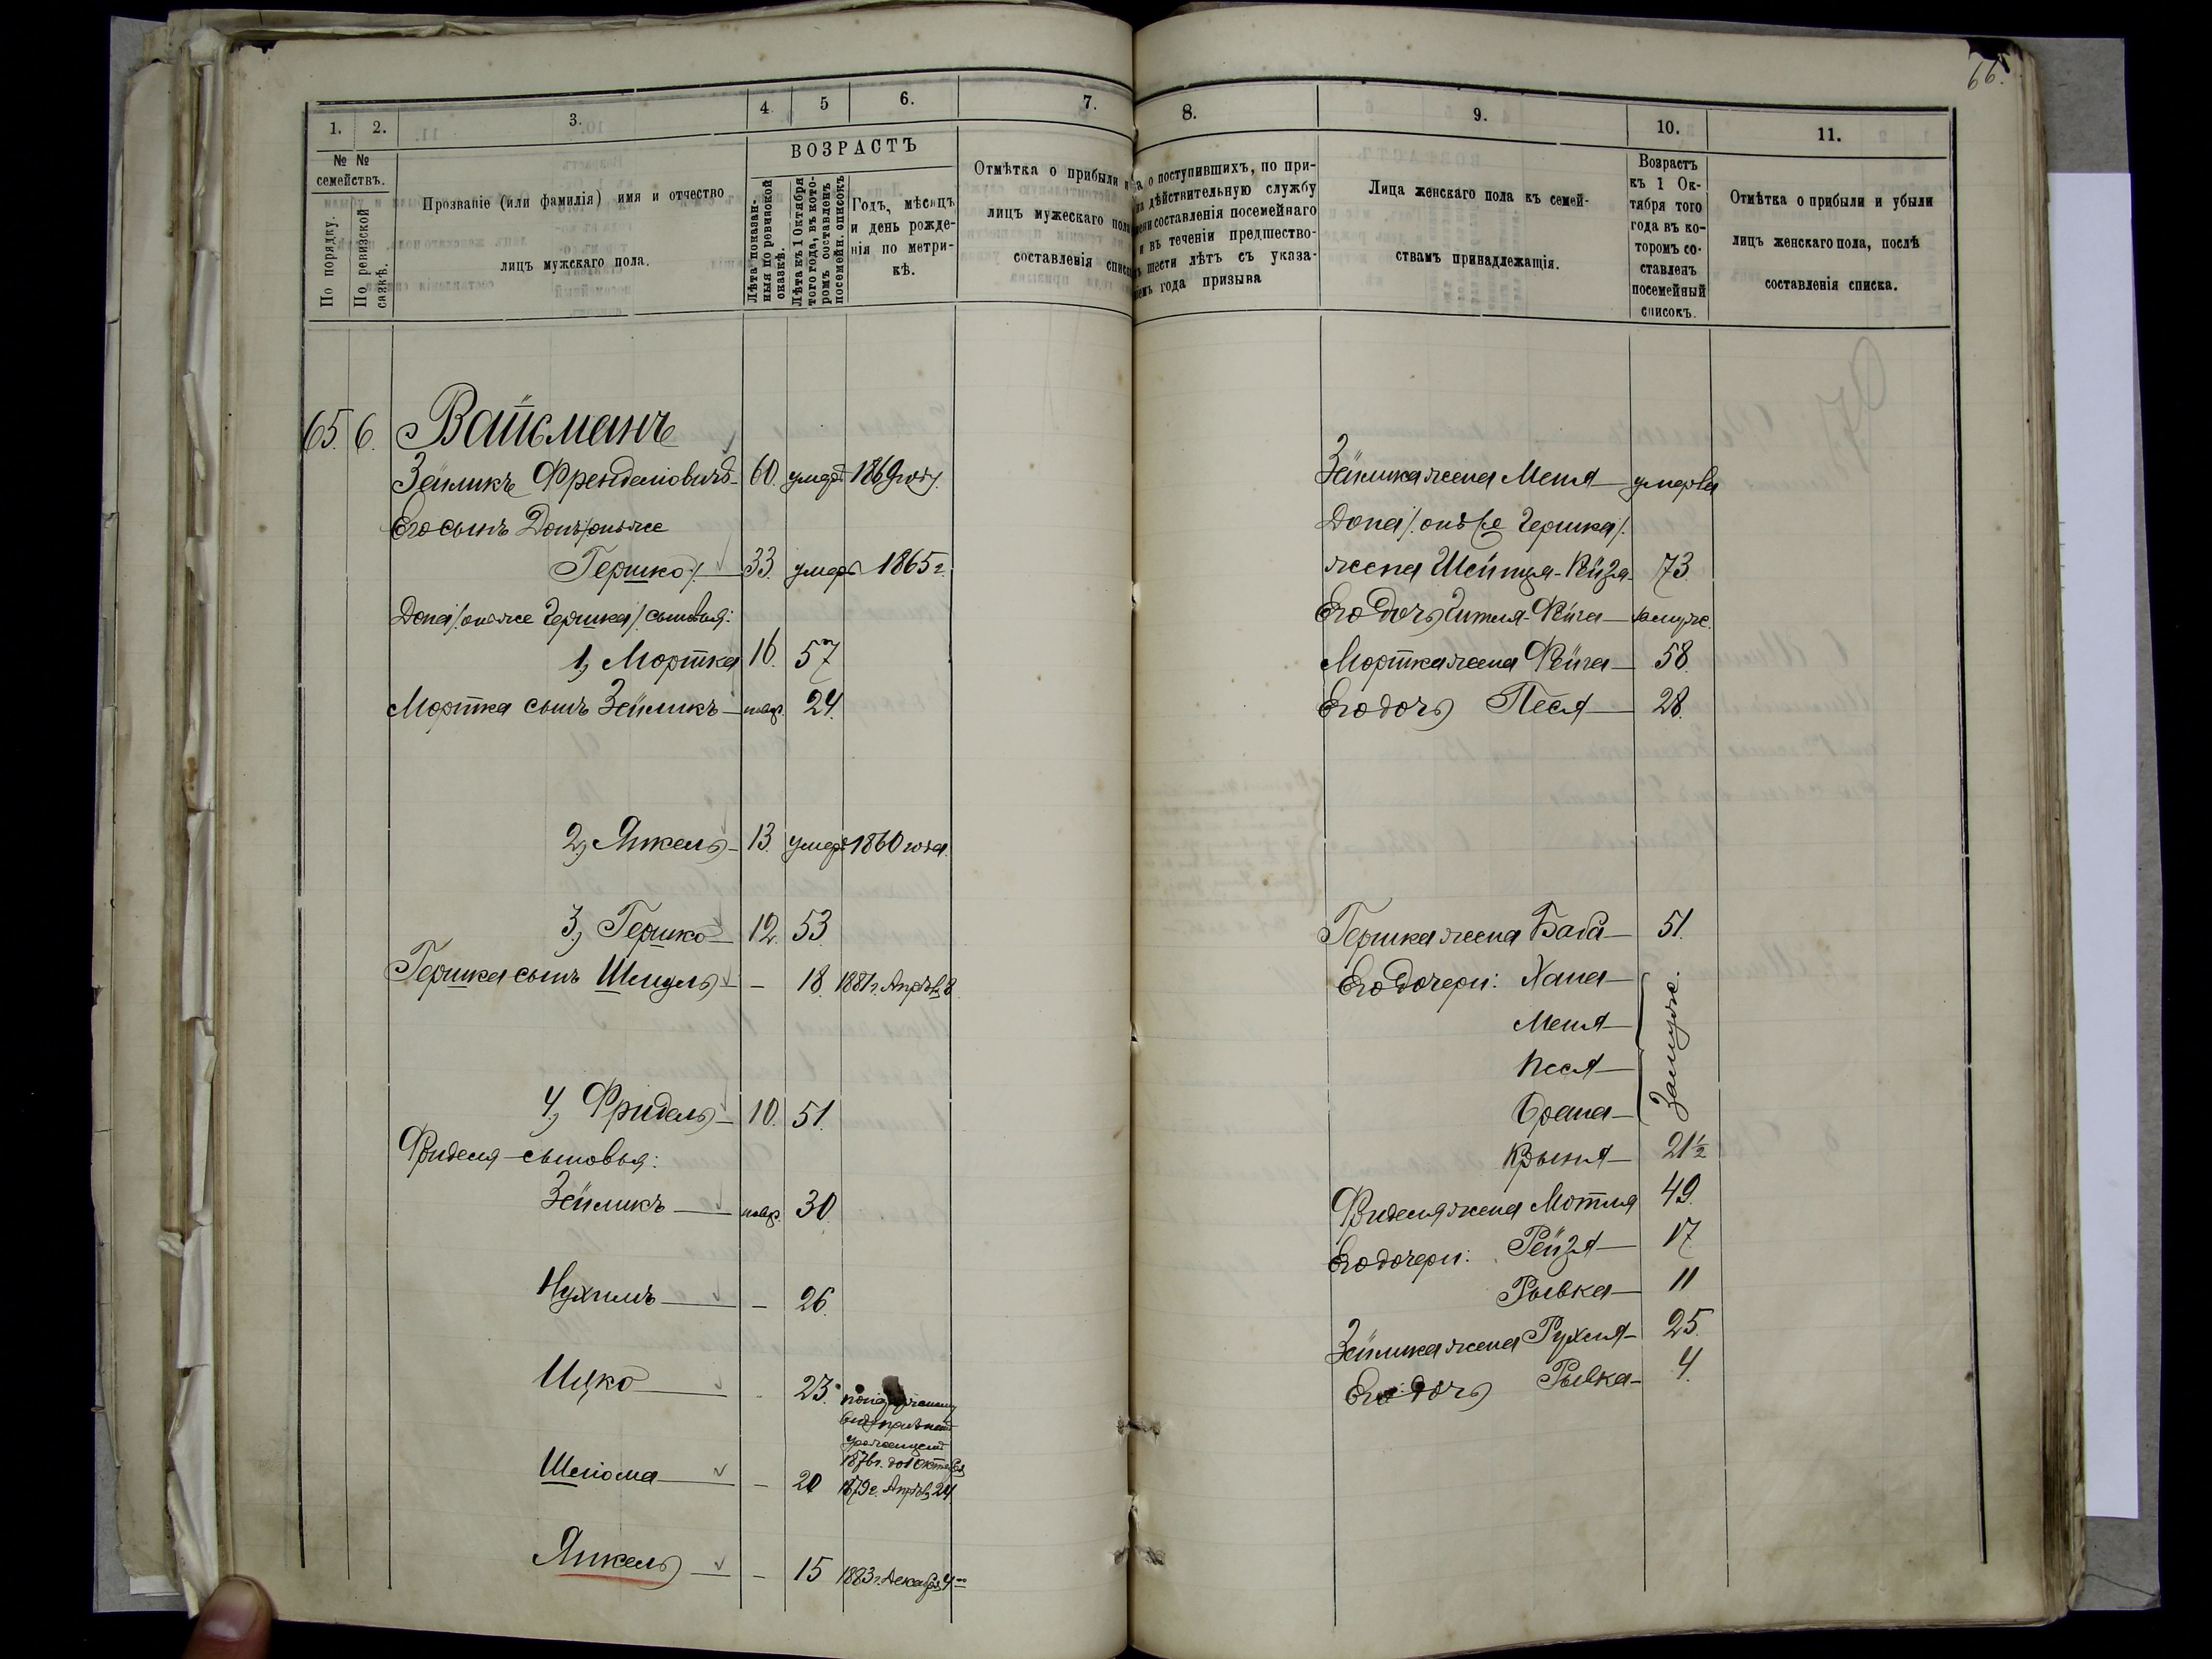 66.
1. 2. 3. 4. 5 6. 7.
№ №
семействъ.
По порядку.
По ревизской сказкѣ.
Прозваніе (или фамилія) имя и отчество
лицъ мужскаго пола.
ВОЗРАСТЪ
Лѣта показан-
ныя по ревизской
сказкѣ.
Лѣта къ 1 Октября
того года, въ кото-
ромъ составленъ
посемейн. списокъ
Годъ, мѣсяцъ
и день рожде-
нія по метри-
кѣ.
Отмѣтка о прибыли и
лицъ мужескаго пола
составленія списка
65. 6. Вайсманъ
Зейликъ Фрейделіовичъ 60. умеръ 1869 году.
Его сынъ Донъ/онъ же
Гершко/. 33. умеръ 1865 г.
Дона/. онъ же Гершка/. сыновья:
1, Мортка 16. 57
Мортка сынъ Зейликъ 24.
2, Янкель 13. умеръ 1860 года.
3, Гершко 12. 53.
Гершка сынъ Шмуль - 18. 1881 г. Апрѣля 8
4, Фридель 10. 51.
Фриделя сыновья:
Зейликъ 30.
Нухимъ - 26.
Ицко - 23.
1876 г. до 1 Октября
Шлиома - 20 1879 г. Апрѣля 24
Янкель - 15 1883 г. Декабря 4
8. 9. 10. 11.
а о поступившихъ, по при-
на дѣйствительную службу
мени составленія посемейнаго
и въ теченіи предшество-
шести лѣтъ съ указа-
ніемъ года призыва
Лица женскаго пола къ семей-
ствамъ принадлежащія.
Возрастъ
къ 1 Ок-
тября того
года въ ко-
торомъ со-
ставленъ
посемейный
списокъ.
Отмѣтка о прибыли и убыли
лицъ женскаго пола, послѣ
составленія списка.
Зейлика жена Меня умерла
Дона/. онъ же Гершка/.
жена Шейнця-Рейзя 73
Его дочь Гитля-Фейга замуже.
Мортка жена Фейга 58
Его дочь Песя 28.
Гершка жена Баса 51.
Его дочери: Хана
Меня
Песя
Брана
Замуже.
Крыня 21½
Фриделя жена Мотля 49.
Его дочери: Рейзя 17
Рывка 11
Зейлика жена Рухля 25.
Его дочь Рывка 4.